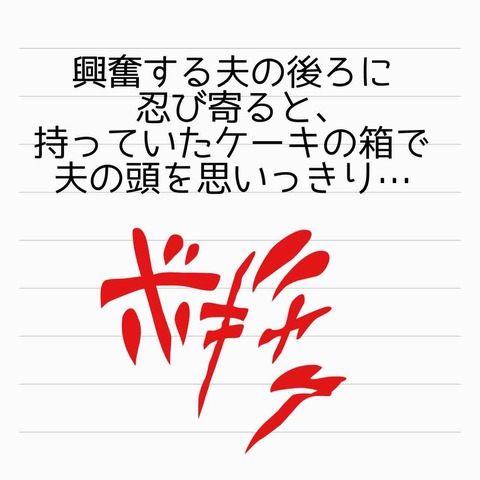 興奮する夫の後ろに
忍び寄ると、
持っていたケーキの箱で
夫の頭を思いっきり…
ボギャッ